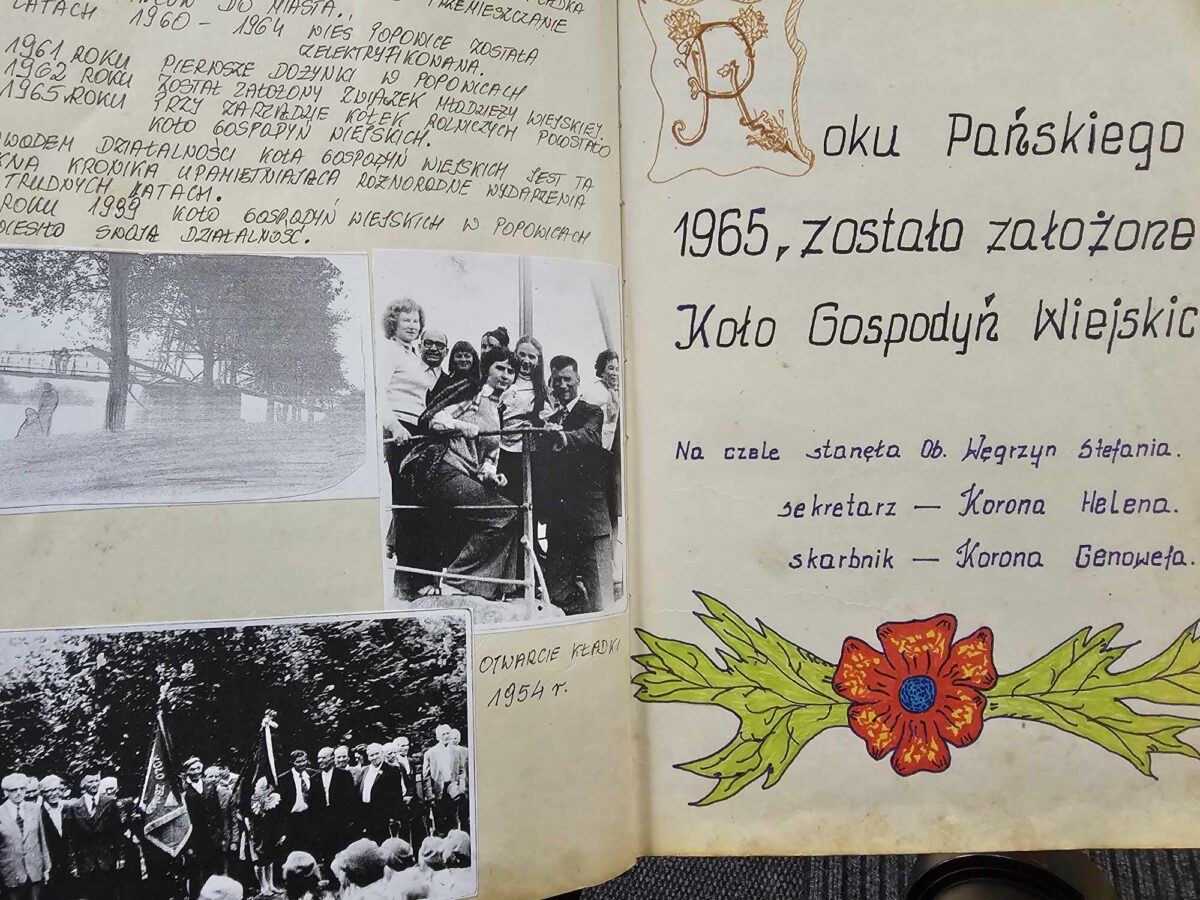 DO MIASTA., PRZEMIESZCZANIE
LATACH 1960 - 1964 WIEŚ POPOWICE ZOSTAŁA
ZELEKTRYFIKOWANA.
1961 ROKU PIERWSZE DOŻYNKI W POPOWICACH
1962 ROKU ZOSTAŁ ZAŁOŻONY ZWIĄZEK MŁODZIEŻY WIEJSKIEJ.
1965 ROKU PRZY ZARZĄDZIE KÓŁEK ROLNICZYCH POWSTAŁO
KOŁO GOSPODYŃ WIEJSKICH.
WODEM DZIAŁALNOŚCI KOŁA GOSPODYŃ WIEJSKICH JEST TA
KNA KRONIKA UPAMIĘTNIAJĄCA RÓŻNORODNE WYDARZENIA
TRUDNYCH LATACH.
ROKU 1999 KOŁO GOSPODYŃ WIEJSKICH W POPOWICACH
SWOJĄ DZIAŁALNOŚĆ.
OTWARCIE KŁADKI
1954 r.
Roku Pańskiego
1965, zostało założone
Koło Gospodyń Wiejskic
Na czele stanęła Ob. Węgrzyn Stefania.
sekretarz — Korona Helena.
skarbnik — Korona Genowefa.